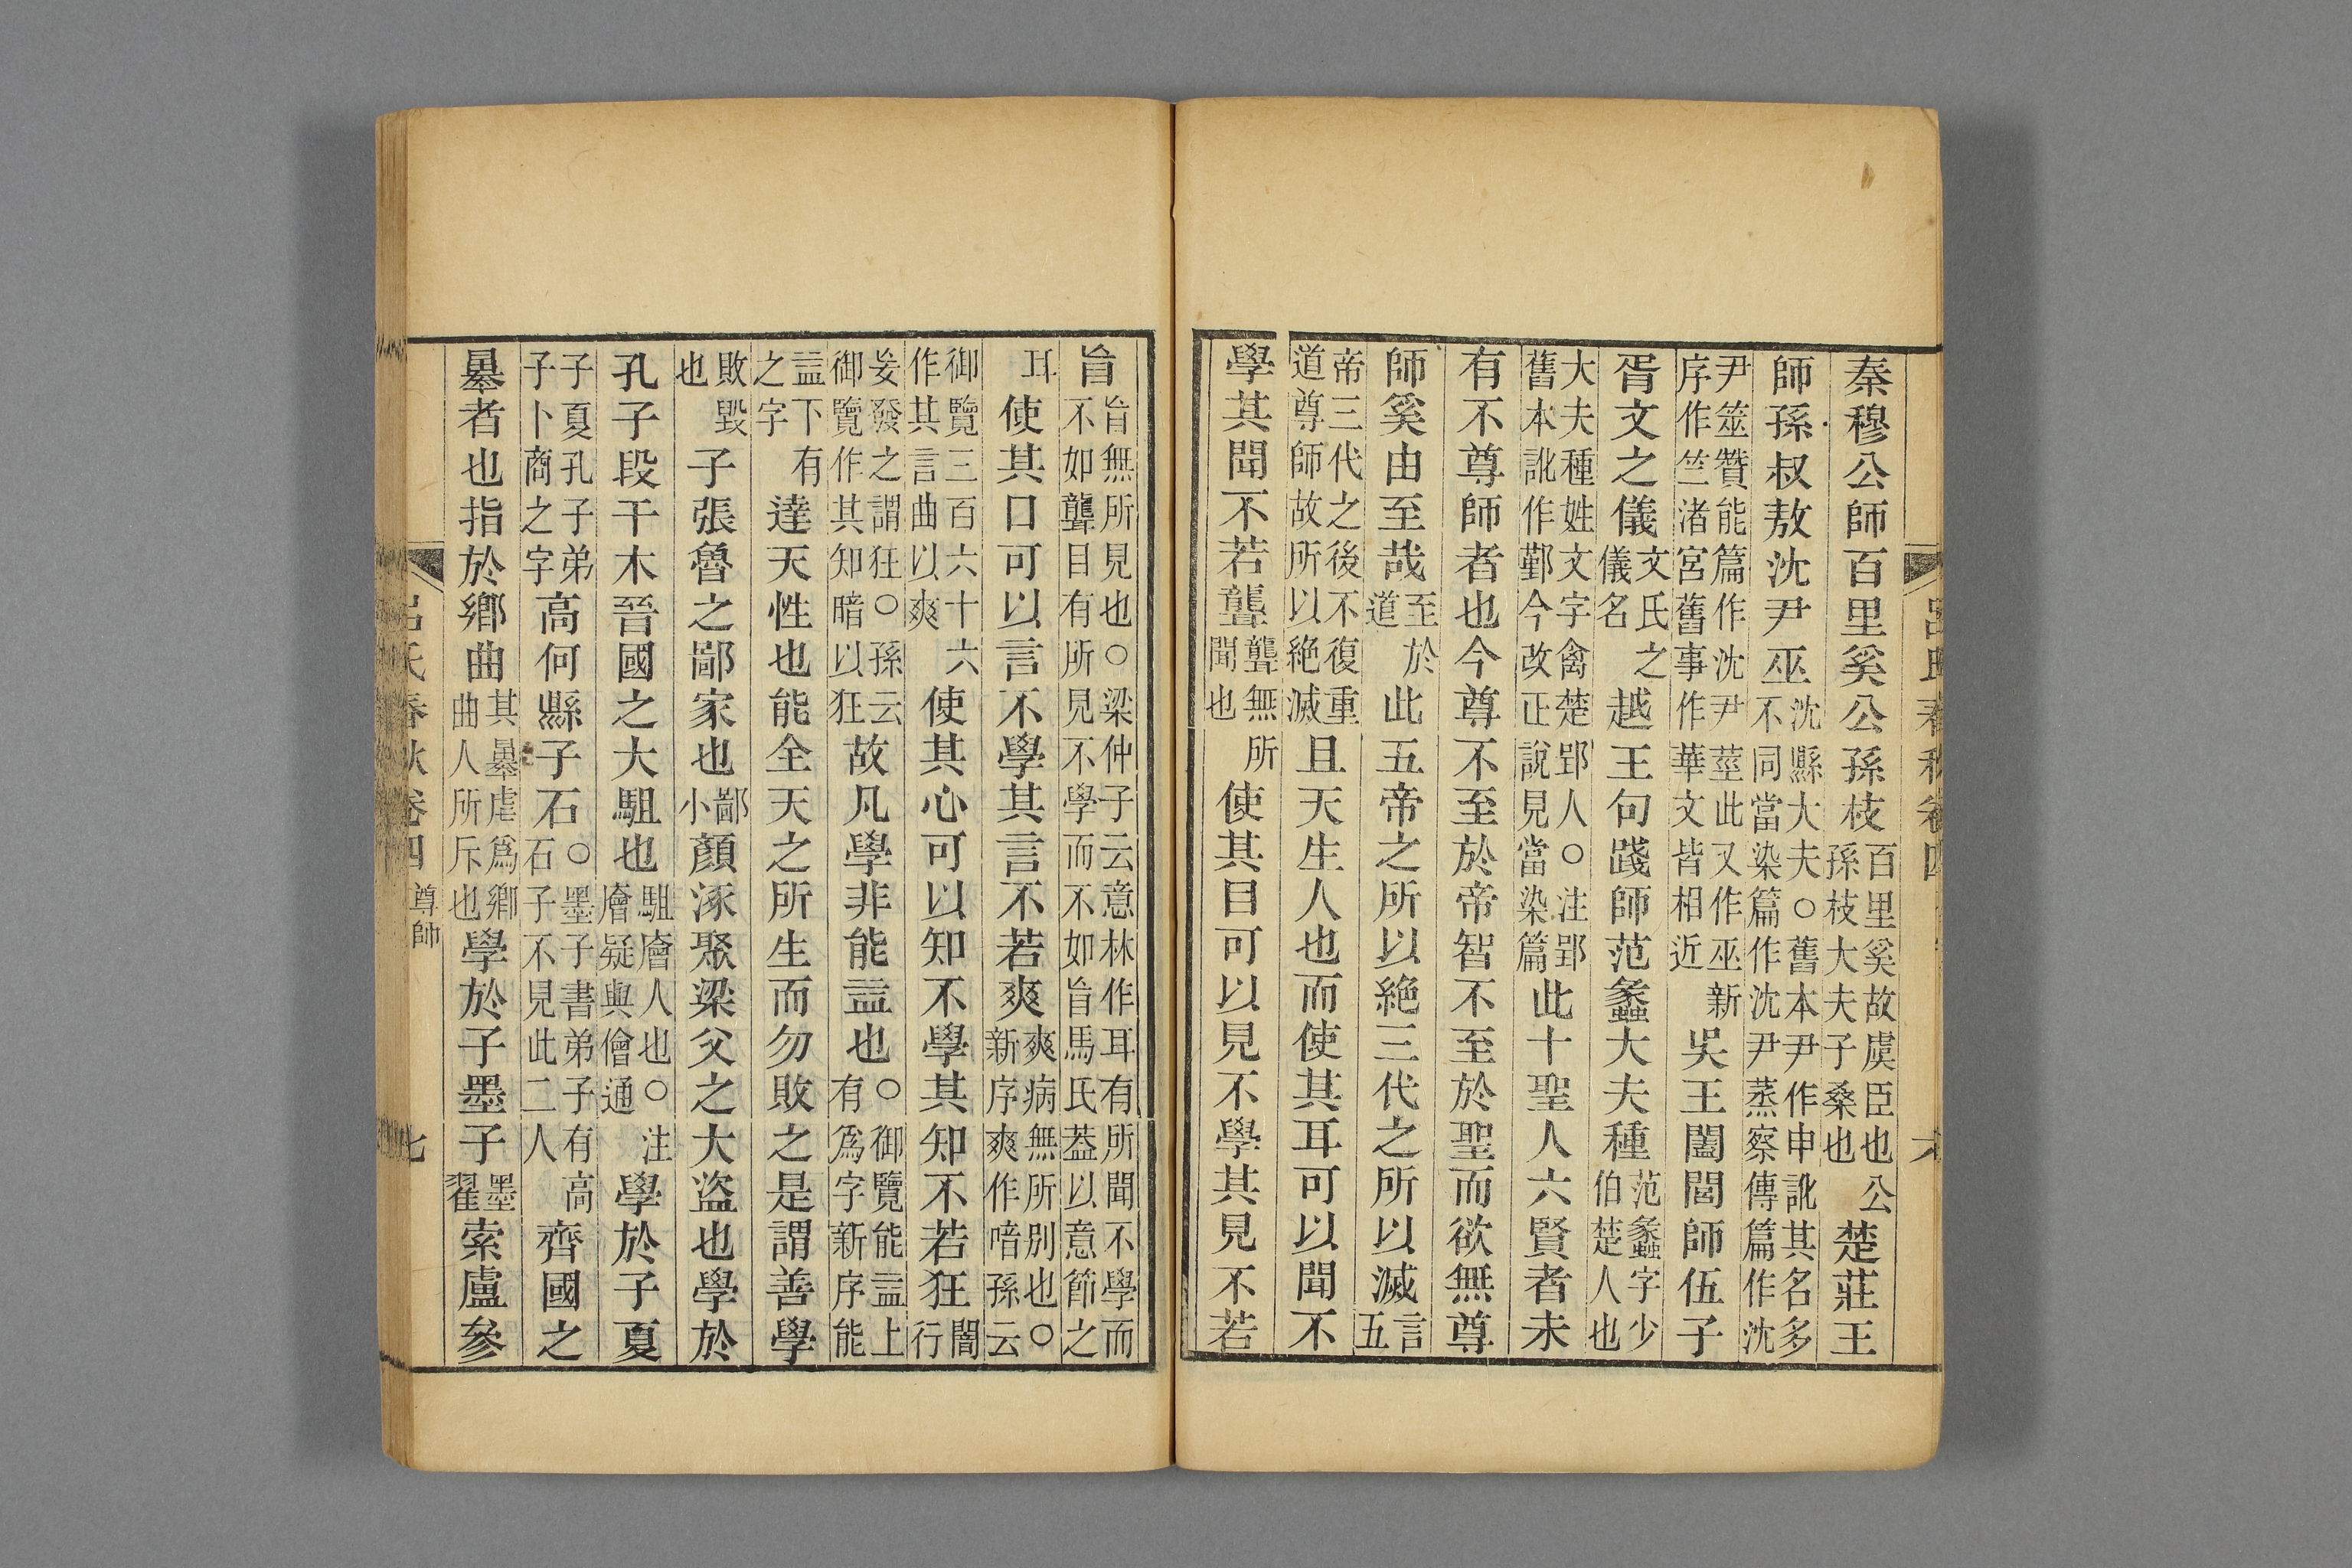 呂氏春秋卷四
秦穆公師百里奚公孫枝百里奚故虞臣也公孫枝大夫子桑也楚莊王
師孫叔敖沈尹巫沈縣大夫○舊本尹作申訛其名多不同當染篇作沈尹蒸察傳篇作沈
尹筮贊能篇作沈尹莖此又作巫新序作竺渚宮舊事作華文皆相近吳王闔閭師伍子
胥文之儀文氏之儀名越王句踐師范蠡大夫種范蠡字少伯楚人也
大夫種姓文字禽楚郢人○注郢舊本訛作鄞今改正說見當染篇此十聖人六賢者未
有不尊師者也今尊不至於帝智不至於聖而欲無尊
師奚由至哉至於道此五帝之所以絕三代之所以滅言五
帝三代之後不復重道尊師故所以絕滅且天生人也而使其耳可以聞不
學其聞不若聾聾無所聞也使其目可以見不學其見不若
盲盲無所見也○梁仲子云意林作耳有所聞不學而不如聾目有所見不學而不如盲馬氏葢以意節之
耳使其口可以言不學其言不若爽爽病無所別也○新序爽作喑孫云
御覽三百六十六作其言曲以爽使其心可以知不學其知不若狂闇行
妄發之謂狂○孫云御覽作其知暗以狂故凡學非能益也○御覽能益上有爲字新序能
益下有之字達天性也能全天之所生而勿敗之是謂善學
敗毀也子張魯之鄙家也鄙小顏涿聚梁父之大盜也學於
孔子段干木晉國之大駔也駔廥人也○注廥疑與儈通學於子夏
子夏孔子弟子卜商之字高何縣子石○墨子書弟子有高石子不見此二人齊國之
㬥者也指於鄉曲其㬥虐爲鄉曲人所斥也學於子墨子墨翟索盧參
呂氏春秋卷四 尊師 七